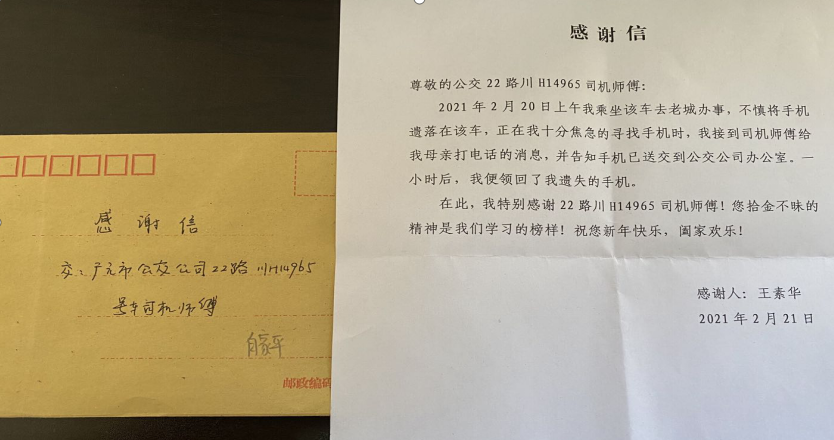 感谢信
交：广元市公交公司22路川H14965
号车司机师傅
邮政编码
感谢信
尊敬的公交22路川H14965司机师傅：
2021年2月20日上午我乘坐该车去老城办事，不慎将手机
遗落在该车，正在我十分焦急的寻找手机时，我接到司机师傅给
我母亲打电话的消息，并告知手机已送交到公交公司办公室。一
小时后，我便领回了我遗失的手机。
在此，我特别感谢22路川H14965司机师傅！您拾金不昧的
精神是我们学习的榜样！祝您新年快乐，阖家欢乐！
感谢人：王素华
2021年2月21日